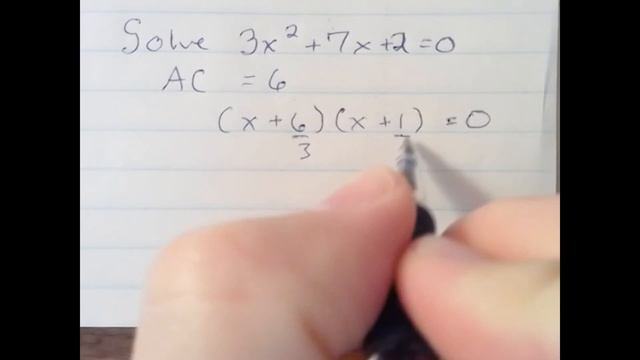 Solve 3x² + 7x + 2 = 0
AC = 6
(x + 6/3)(x + 1/) = 0